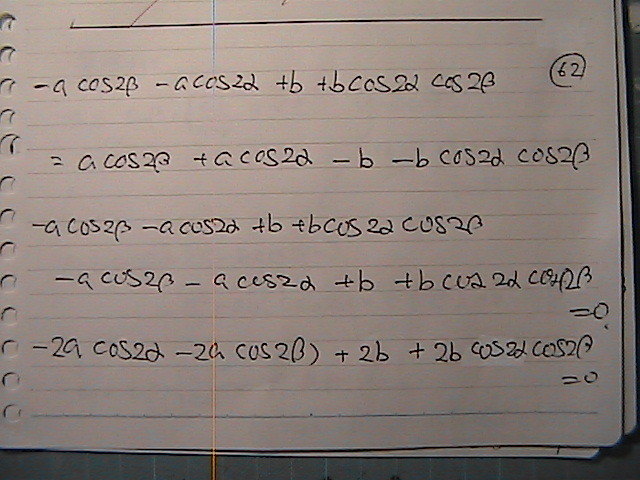 -a cos2β -a cos2α +b +b cos2α cos2β (62)
= a cos2β + a cos2α - b - b cos2α cos2β
-a cos2β - a cos2α + b + b cos2α cos2β
-a cos2β - a cos2α + b + b cos 2α cos2β
=0
-2a cos2α -2a cos2β) + 2b + 2b cos2α cos2β
=0